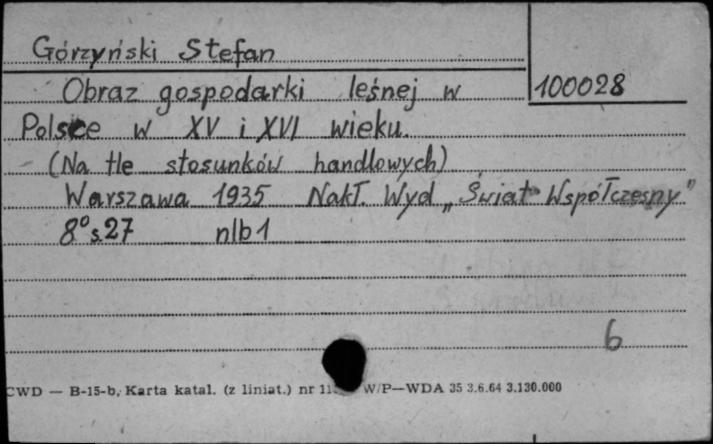 Górzyński Stefan
Obraz gospodarki leśnej w
100028
Polsce w XV i XVI wieku.
(Na tle stosunków handlowych)
Warszawa 1935 Nakł. Wyd „Świat Współczesny”
8° s.27 nlb 1
6
CWD — B-15-b, Karta katal. (z liniat.) nr W/P—WDA 35 3.6.64 3.130.000